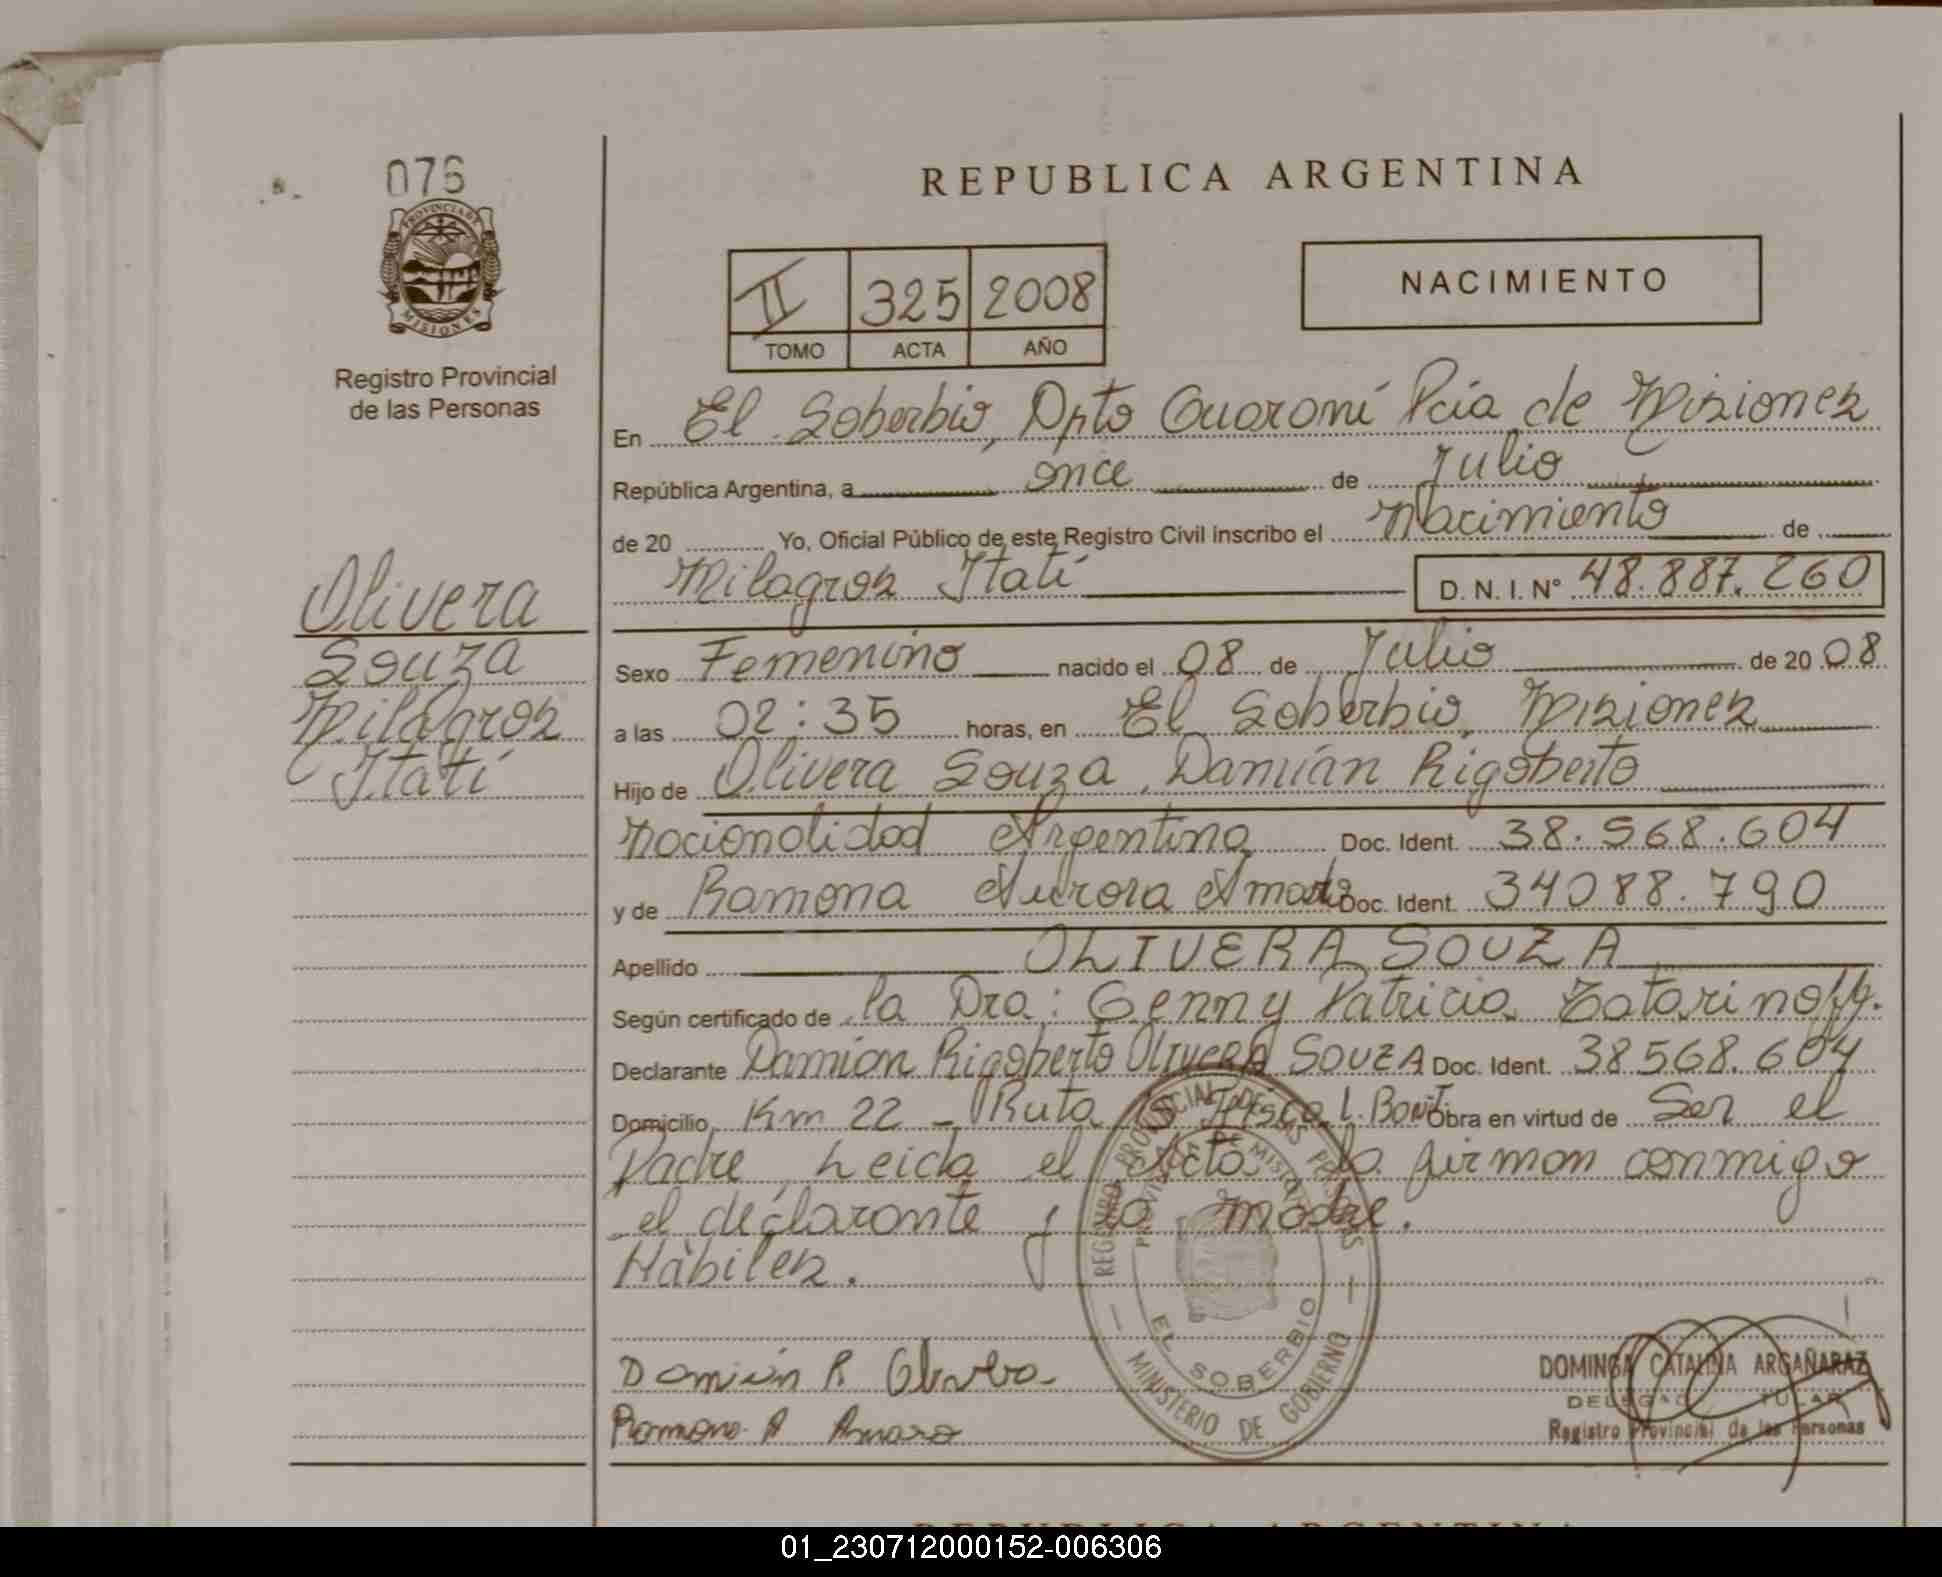 076
PROVINCIA DE
MISIONES
Registro Provincial
de las Personas
REPUBLICA ARGENTINA
II 325 2008
TOMO ACTA AÑO
NACIMIENTO
En El Soberbio, Dpto Guaraní Pcia de Misiones
República Argentina, a once de Julio
de 20 Yo, Oficial Público de este Registro Civil inscribo el Nacimiento de
Milagros Itatí D. N. I. Nº 48.887.260
Olivera
Souza
Milagros
Itatí
Sexo Femenino nacido el 08 de Julio de 20 08
a las 02:35 horas, en El Soberbio, Misiones
Hijo de Olivera Souza, Damián Rigoberto
Nacionalidad Argentina Doc. Ident. 38.568.604
y de Ramona Aurora Doc. Ident. 34088.790
Apellido OLIVERA SOUZA
Según certificado de la Dra: Genny Patricia
Declarante Damián Rigoberto OLIVERA SOUZA Doc. Ident. 38568.604
Domicilio Km 22 - Ruta Obra en virtud de Ser el
Padre, Leída el Acta la firman conmigo
el declarante y la madre.
Hábiles.
Damián R Olivera
Ramona A Amaro
REGISTRO PROVINCIAL DE LAS PERSONAS
PROVINCIA DE MISIONES
EL SOBERBIO
MINISTERIO DE GOBIERNO
DOMINGA CATALINA ARGAÑARAZ
Registro Provincial de las Personas
REPUBLICA ARGENTINA
01_230712000152-006306